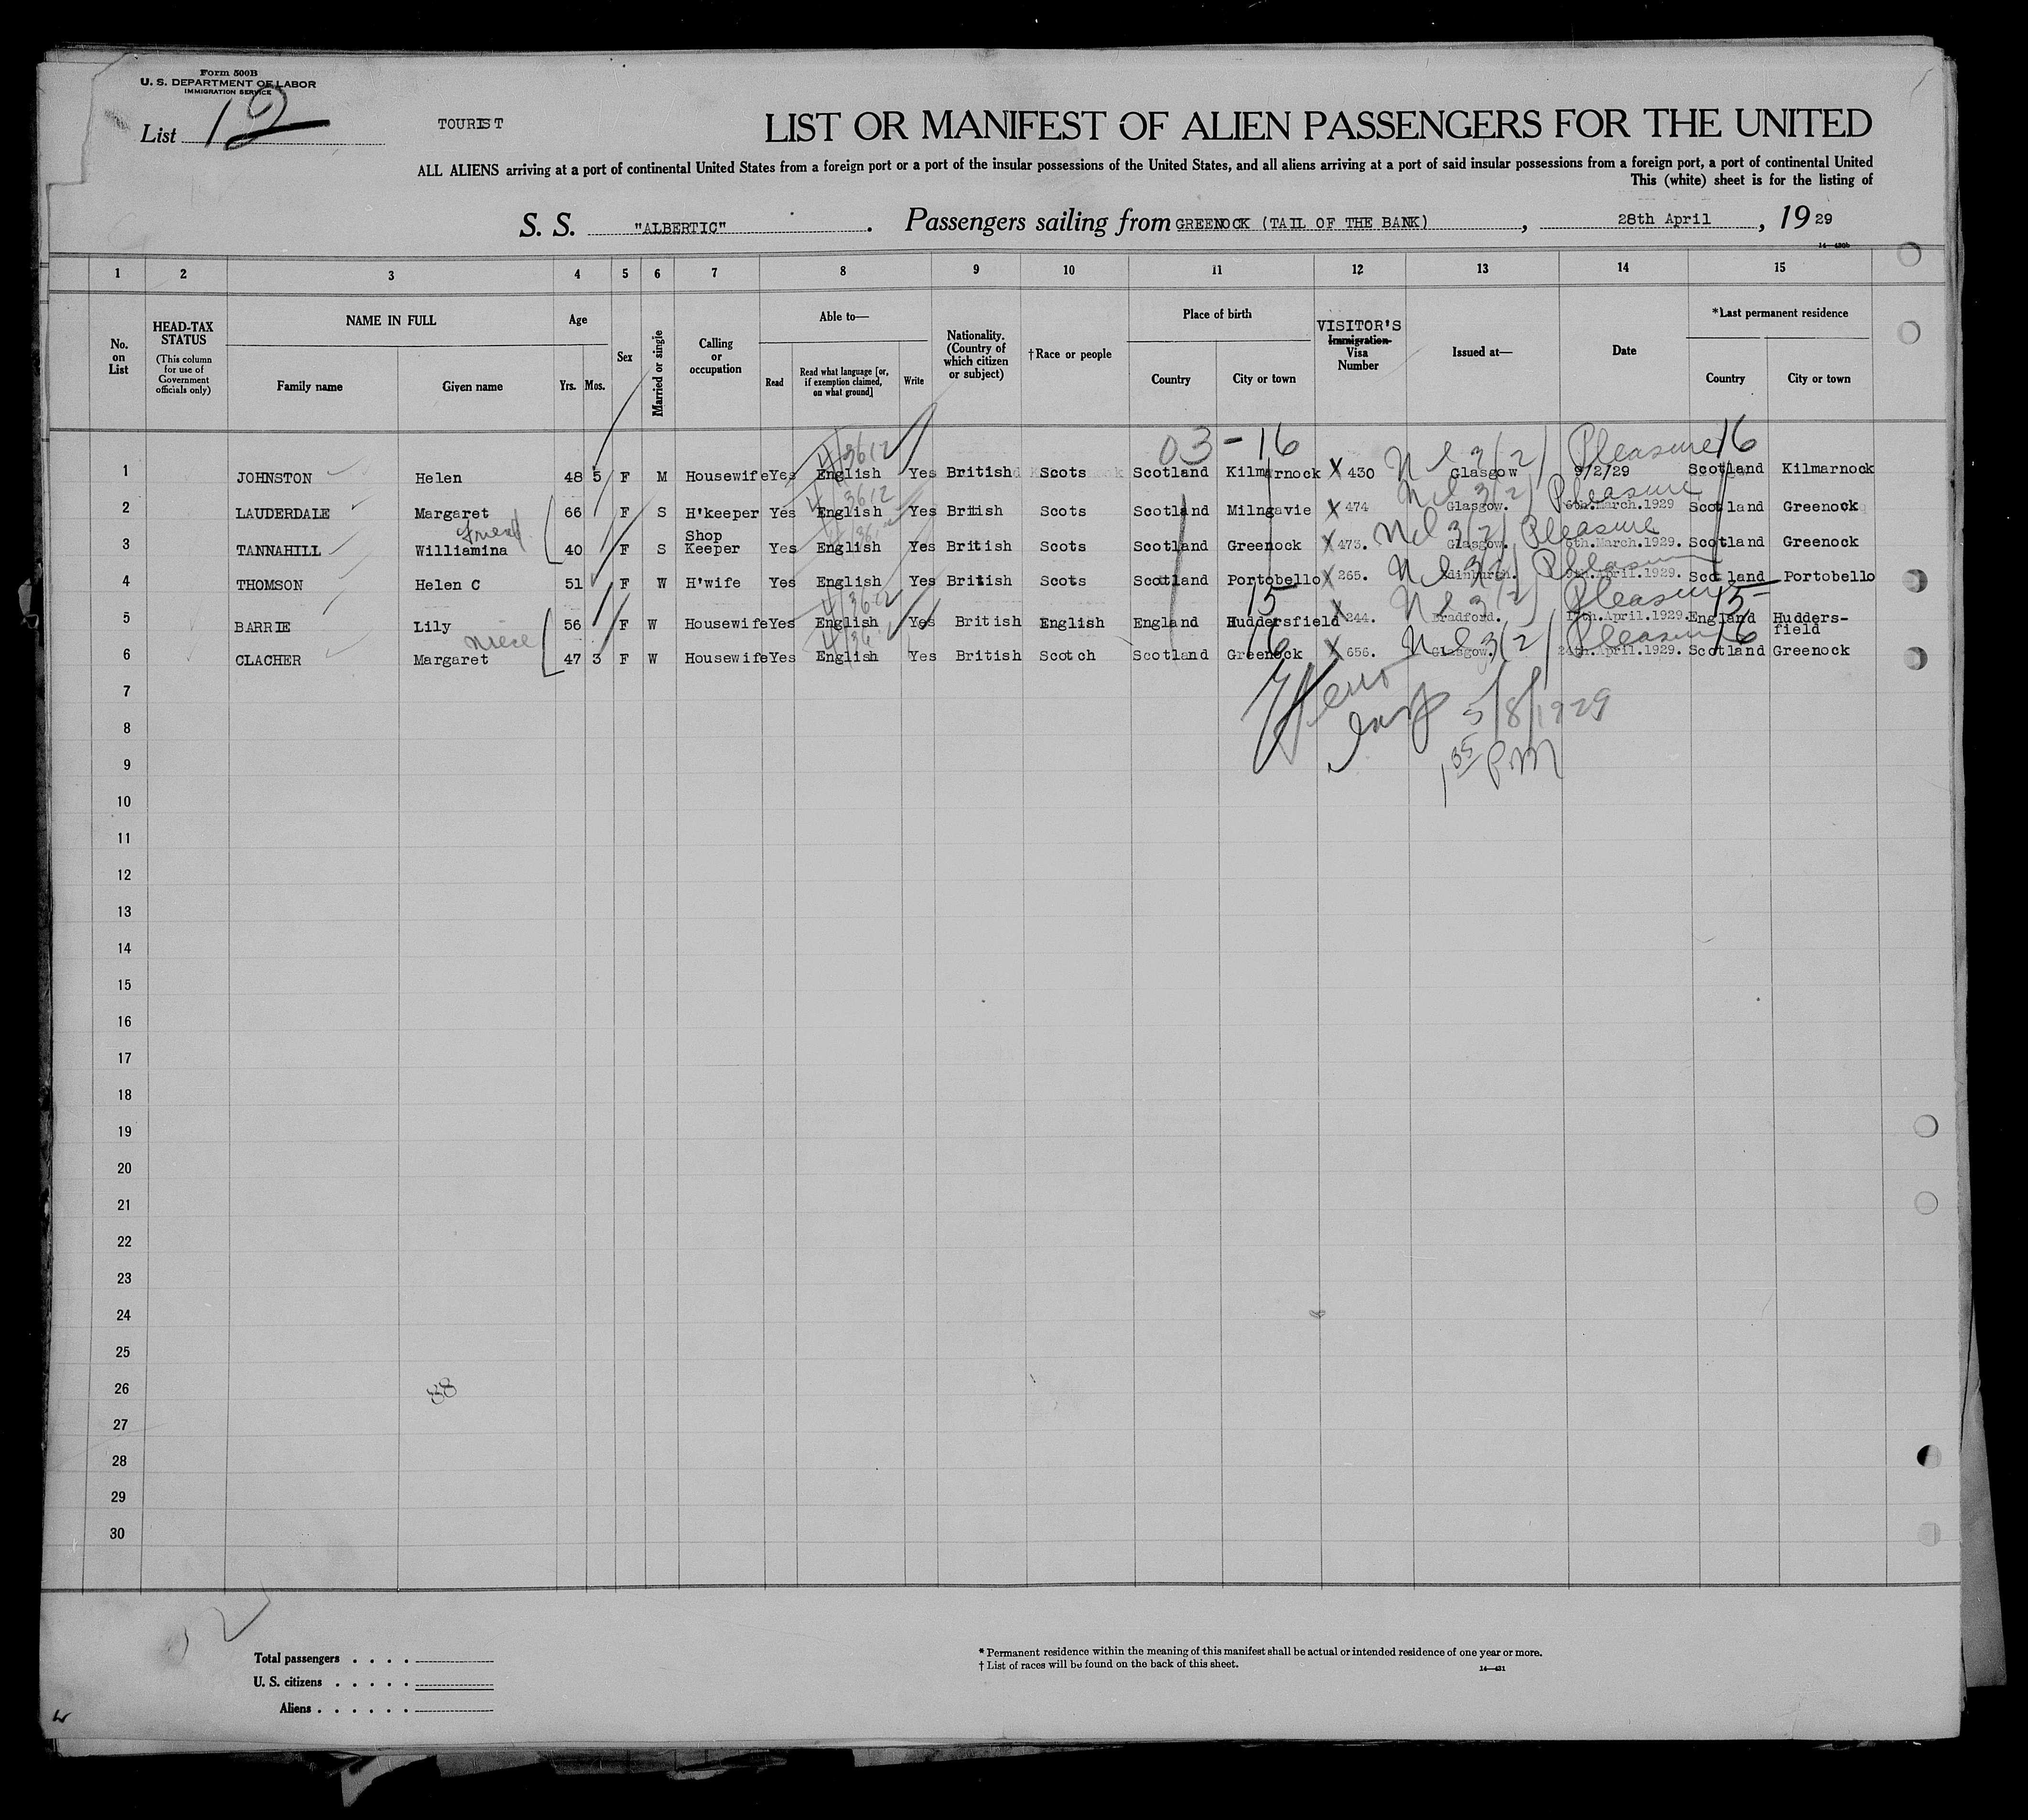 Form 500B
U. S. DEPARTMENT OF LABOR
IMMIGRATION SERVICE
List 12
TOURIST
LIST OR MANIFEST OF ALIEN PASSENGERS FOR THE UNITED
ALL ALIENS arriving at a port of continental United States from a foreign port or a port of the insular possessions of the United States, and all aliens arriving at a port of said insular possessions from a foreign port, a port of continental United
This (white) sheet is for the listing of
S. S. "ALBERTIC". Passengers sailing from GREENOCK (TAIL OF THE BANK), 28th April, 1929
1 2 3 4 5 6 7 8 9 10 11 12 13 14 15
No. on List
HEAD-TAX STATUS
(This column for use of Government officials only)
NAME IN FULL
Family name Given name
Age
Yrs. Mos.
Sex
Married or single
Calling or occupation
Able to—
Read
Read what language [or, if exemption claimed, on what ground]
Write
Nationality. (Country of which citizen or subject)
†Race or people
Place of birth
Country City or town
VISITOR'S
Immigration Visa Number
Issued at—
Date
*Last permanent residence
Country City or town
03-16 Pleasure 16
1 JOHNSTON Helen 48 5 F M Housewife Yes English Yes British Scots Scotland Kilmarnock X 430 Glasgow 9/2/29 Scotland Kilmarnock
Pleasure
2 LAUDERDALE Margaret 66 F S H'keeper Yes English Yes British Scots Scotland Milngavie X 474 Glasgow. 6th.March.1929 Scotland Greenock
friend Pleasure
3 TANNAHILL Williamina 40 F S Shop Keeper Yes English Yes British Scots Scotland Greenock X 473. Glasgow. 6th.March.1929. Scotland Greenock
Pleasure
4 THOMSON Helen C 51 F W H'wife Yes English Yes British Scots Scotland Portobello X 265. Edinburgh. 9th.April.1929. Scotland Portobello
15 Pleasure 15
5 BARRIE Lily 56 F W Housewife Yes English Yes British English England Huddersfield X 244. Bradford. April.1929. England Hudders-field
niece 16 Pleasure 16
6 CLACHER Margaret 47 3 F W Housewife Yes English Yes British Scotch Scotland Greenock X 656. Glasgow. 24th.April.1929. Scotland Greenock
7
5/8/1929
8
1 35 PM
9
10
11
12
13
14
15
16
17
18
19
20
21
22
23
24
25
26
27
28
29
30
Total passengers . . . .
U. S. citizens . . . . .
Aliens . . . . . .
* Permanent residence within the meaning of this manifest shall be actual or intended residence of one year or more.
† List of races will be found on the back of this sheet.
14—431